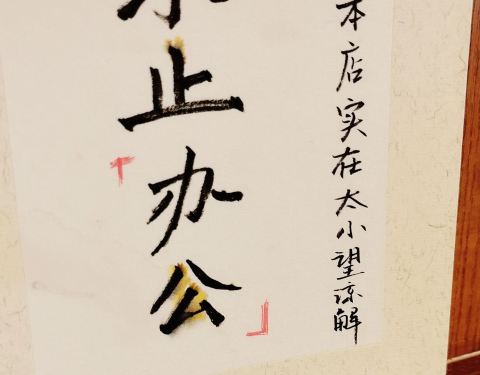 本店实在太小望谅解
止「办公」